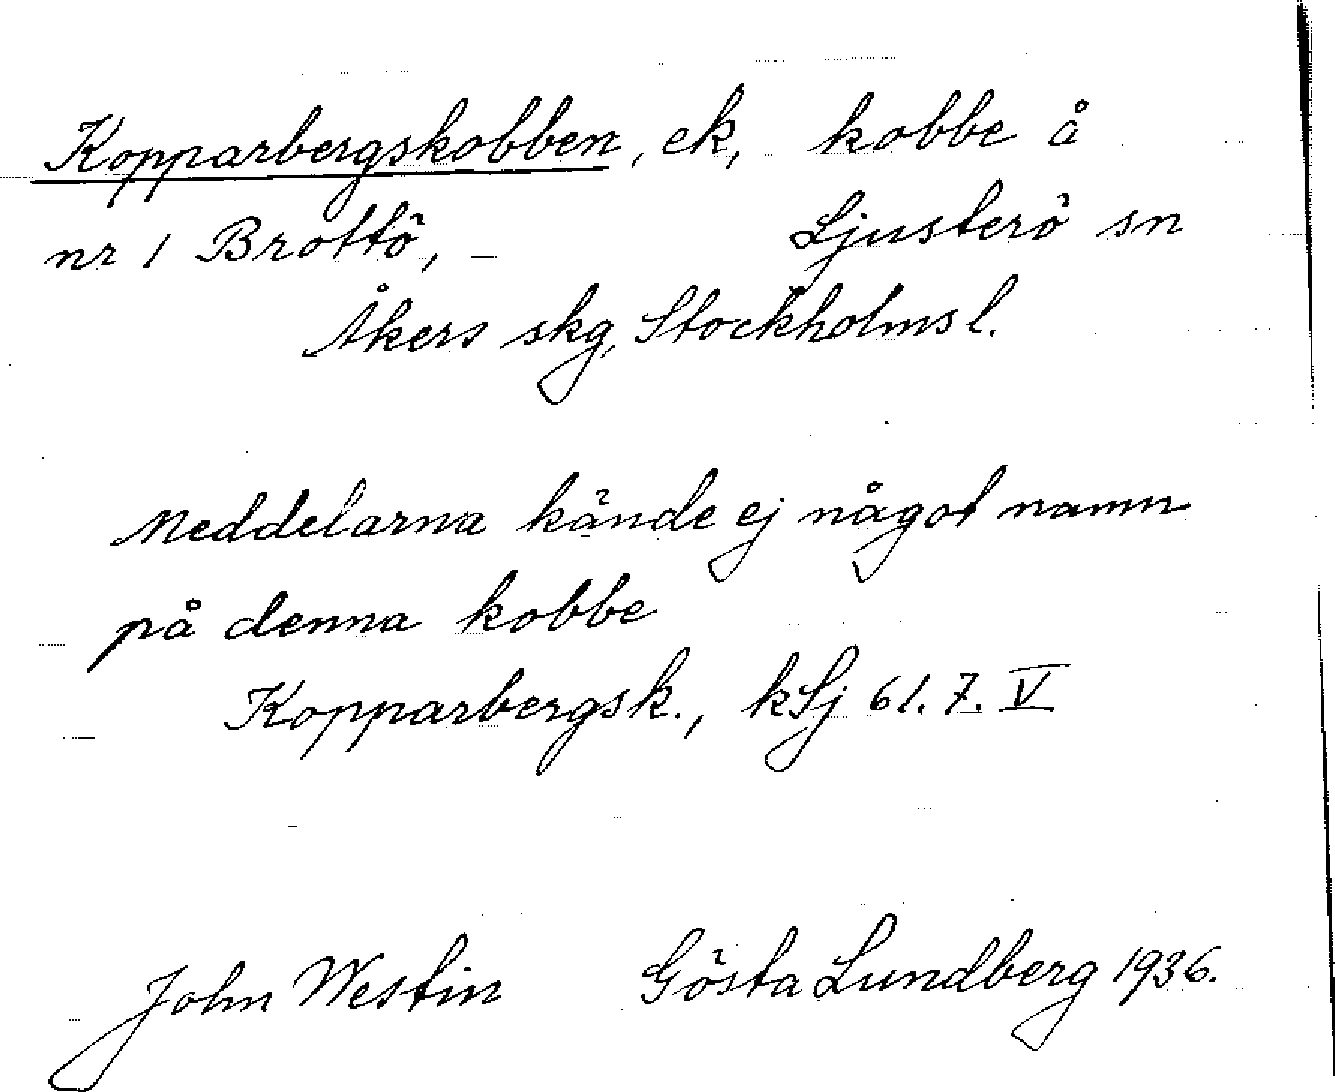 Kopparbergskobben, ek, kobbe å
nr 1 Brottö, Ljusterö sn
Åkers skg, Stockholms l.
Meddelarna kände ej något namn
på denna kobbe
Kopparbergsk., kSj 61.7.V
John Westin Gösta Lundberg 1936.